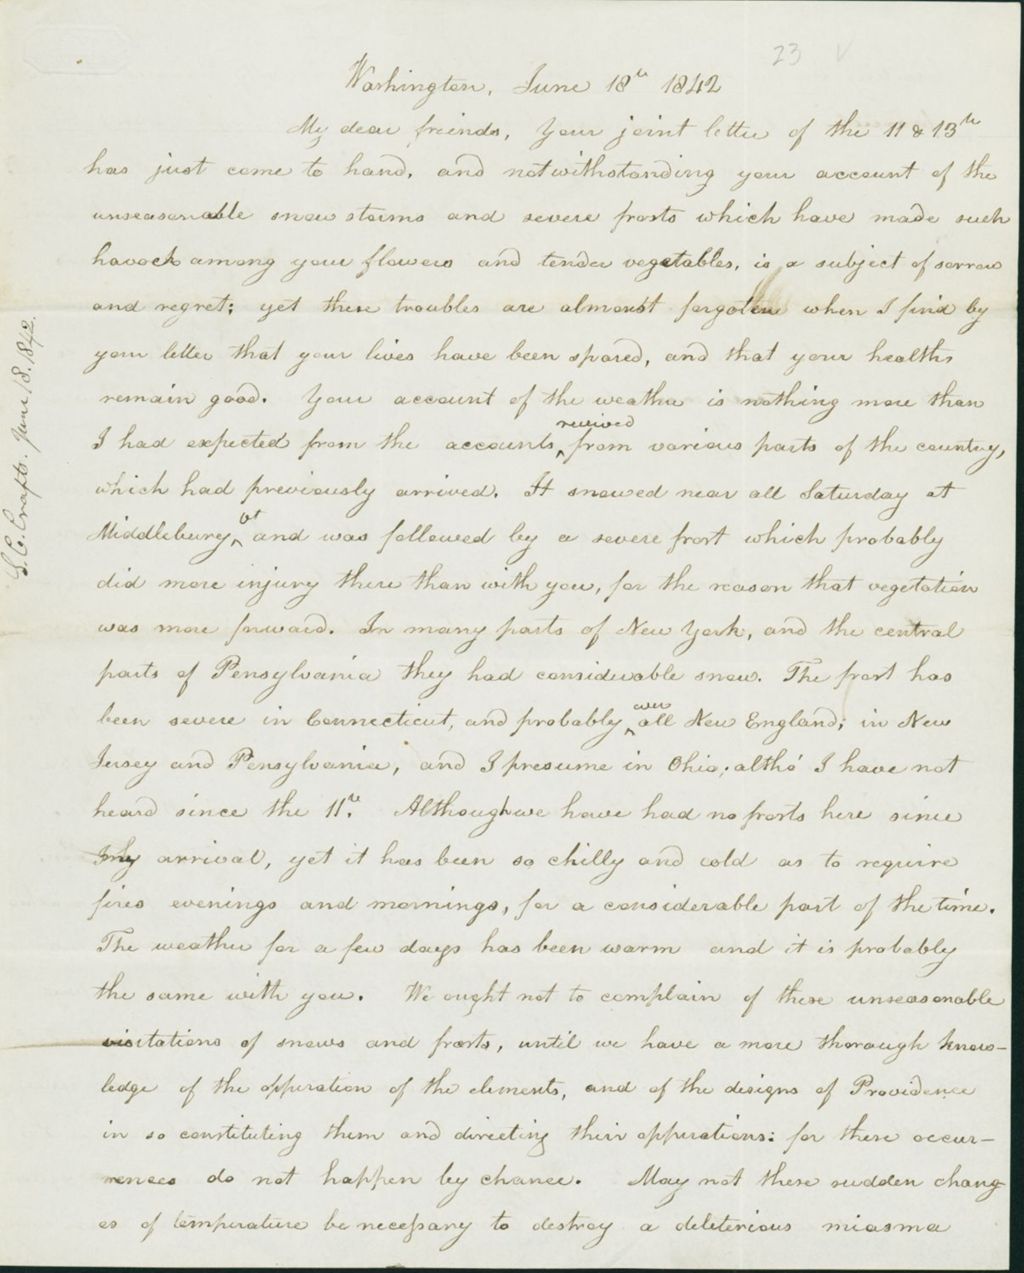 23
Washington, June 18th 1842
My dear friends, Your joint letter of the 11 & 13th
has just come to hand, and notwithstanding your account of the
unseasonable snow storms and severe frosts which have made such
havock among your flowers and tender vegetables, is a subject of sorrow
and regret; yet these troubles are almost forgoten when I find by
your letter that your lives have been spared, and that your healths
remain good. Your account of the weather is nothing more than
I had expected from the accounts, recived from various parts of the country,
which had previously arrived. It snowed near all Saturday at
Middlebury Vt and was followed by a severe frost which probably
did more injury there than with you, for the reason that vegetation
was more forward. In many parts of New York, and the central
parts of Pensylvania they had considerable snow. The frost has
been severe in Connecticut, and probably over all New England; in New
Jersey and Pensylvania, and I presume in Ohio; altho' I have not
heard since the 11th. Although we have had no frosts here since
my arrival, yet it has been so chilly and cold as to require
fires evenings and mornings, for a considerable part of the time.
The weather for a few days has been warm and it is probably
the same with you. We ought not to complain of these unseasonable
visitations of snows and frosts, until we have a more thorough know-
ledge of the opperation of the elements, and of the designs of Providence
in so constituting them and directing their opperations: for these occur-
rences do not happen by chance. May not these sudden chang
es of temperature be necessary to destroy a deleterious miasma
S. C. Crafts. June 18. 1842.